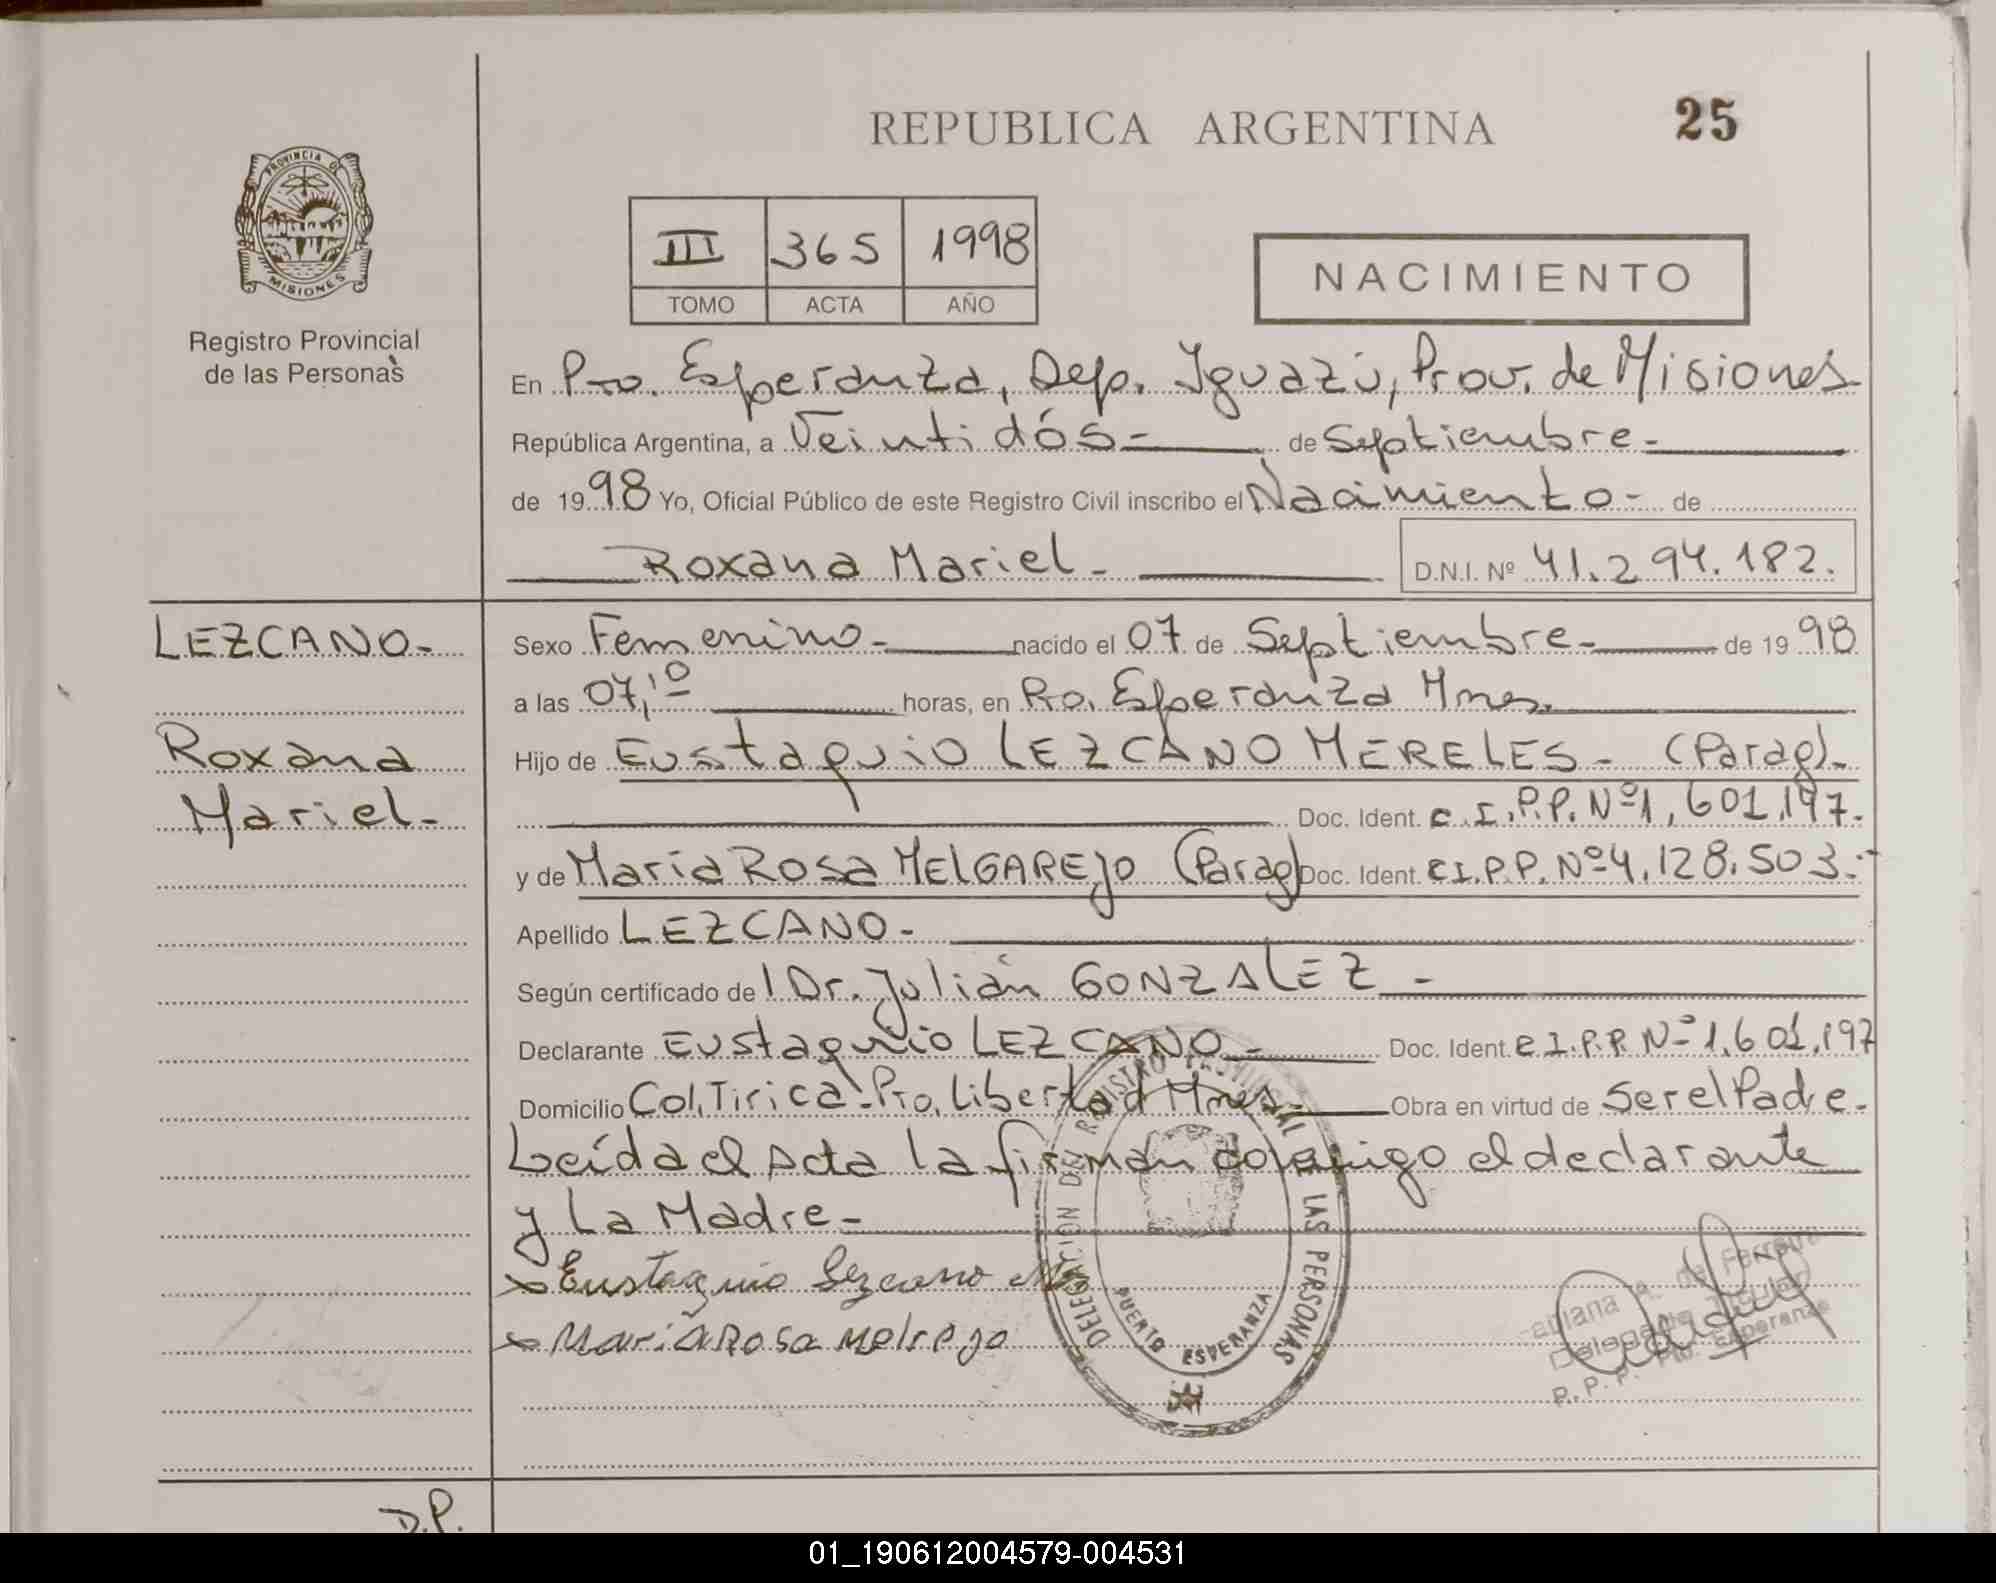 REPUBLICA ARGENTINA
25
PROVINCIA DE
MISIONES
Registro Provincial
de las Personas
III 365 1998
TOMO ACTA AÑO
NACIMIENTO
En Pto. Esperanza, Dep. Iguazú, Prov. de Misiones
República Argentina, a Veintidós- de Septiembre-
de 1998 Yo, Oficial Público de este Registro Civil inscribo el Nacimiento- de
Roxana Mariel-
D.N.I. Nº 41.294.182.
LEZCANO-
Roxana
Mariel-
Sexo Femenino- nacido el 07 de Septiembre- de 1998
a las 07,10 horas, en Pto. Esperanza Mnes.
Hijo de Eustaquio LEZCANO MERELES- (Parag)-
Doc. Ident. C.I.P.P. Nº 1,601,197.-
y de María Rosa MELGAREJO (Parag) Doc. Ident. C.I.P.P. Nº 4.128.503.-
Apellido LEZCANO-
Según certificado de l Dr. Julián GONZALEZ-
Declarante Eustaquio LEZCANO- Doc. Ident. C.I.P.P. Nº 1.601.197
Domicilio Col. Tirica-Pto. Libertad Mnes- Obra en virtud de Ser el Padre-
Leída el Acta la firman conmigo el declarante
y La Madre-
x Eustaquio Lezcano M
x MaríA Rosa Melrejo
DELEGACION DEL REGISTRO PROVINCIAL DE LAS PERSONAS
PUERTO ESPERANZA
de Ferreira
Delegada Titular
R.P.P. Pto. Esperanza
D.P.
01_190612004579-004531